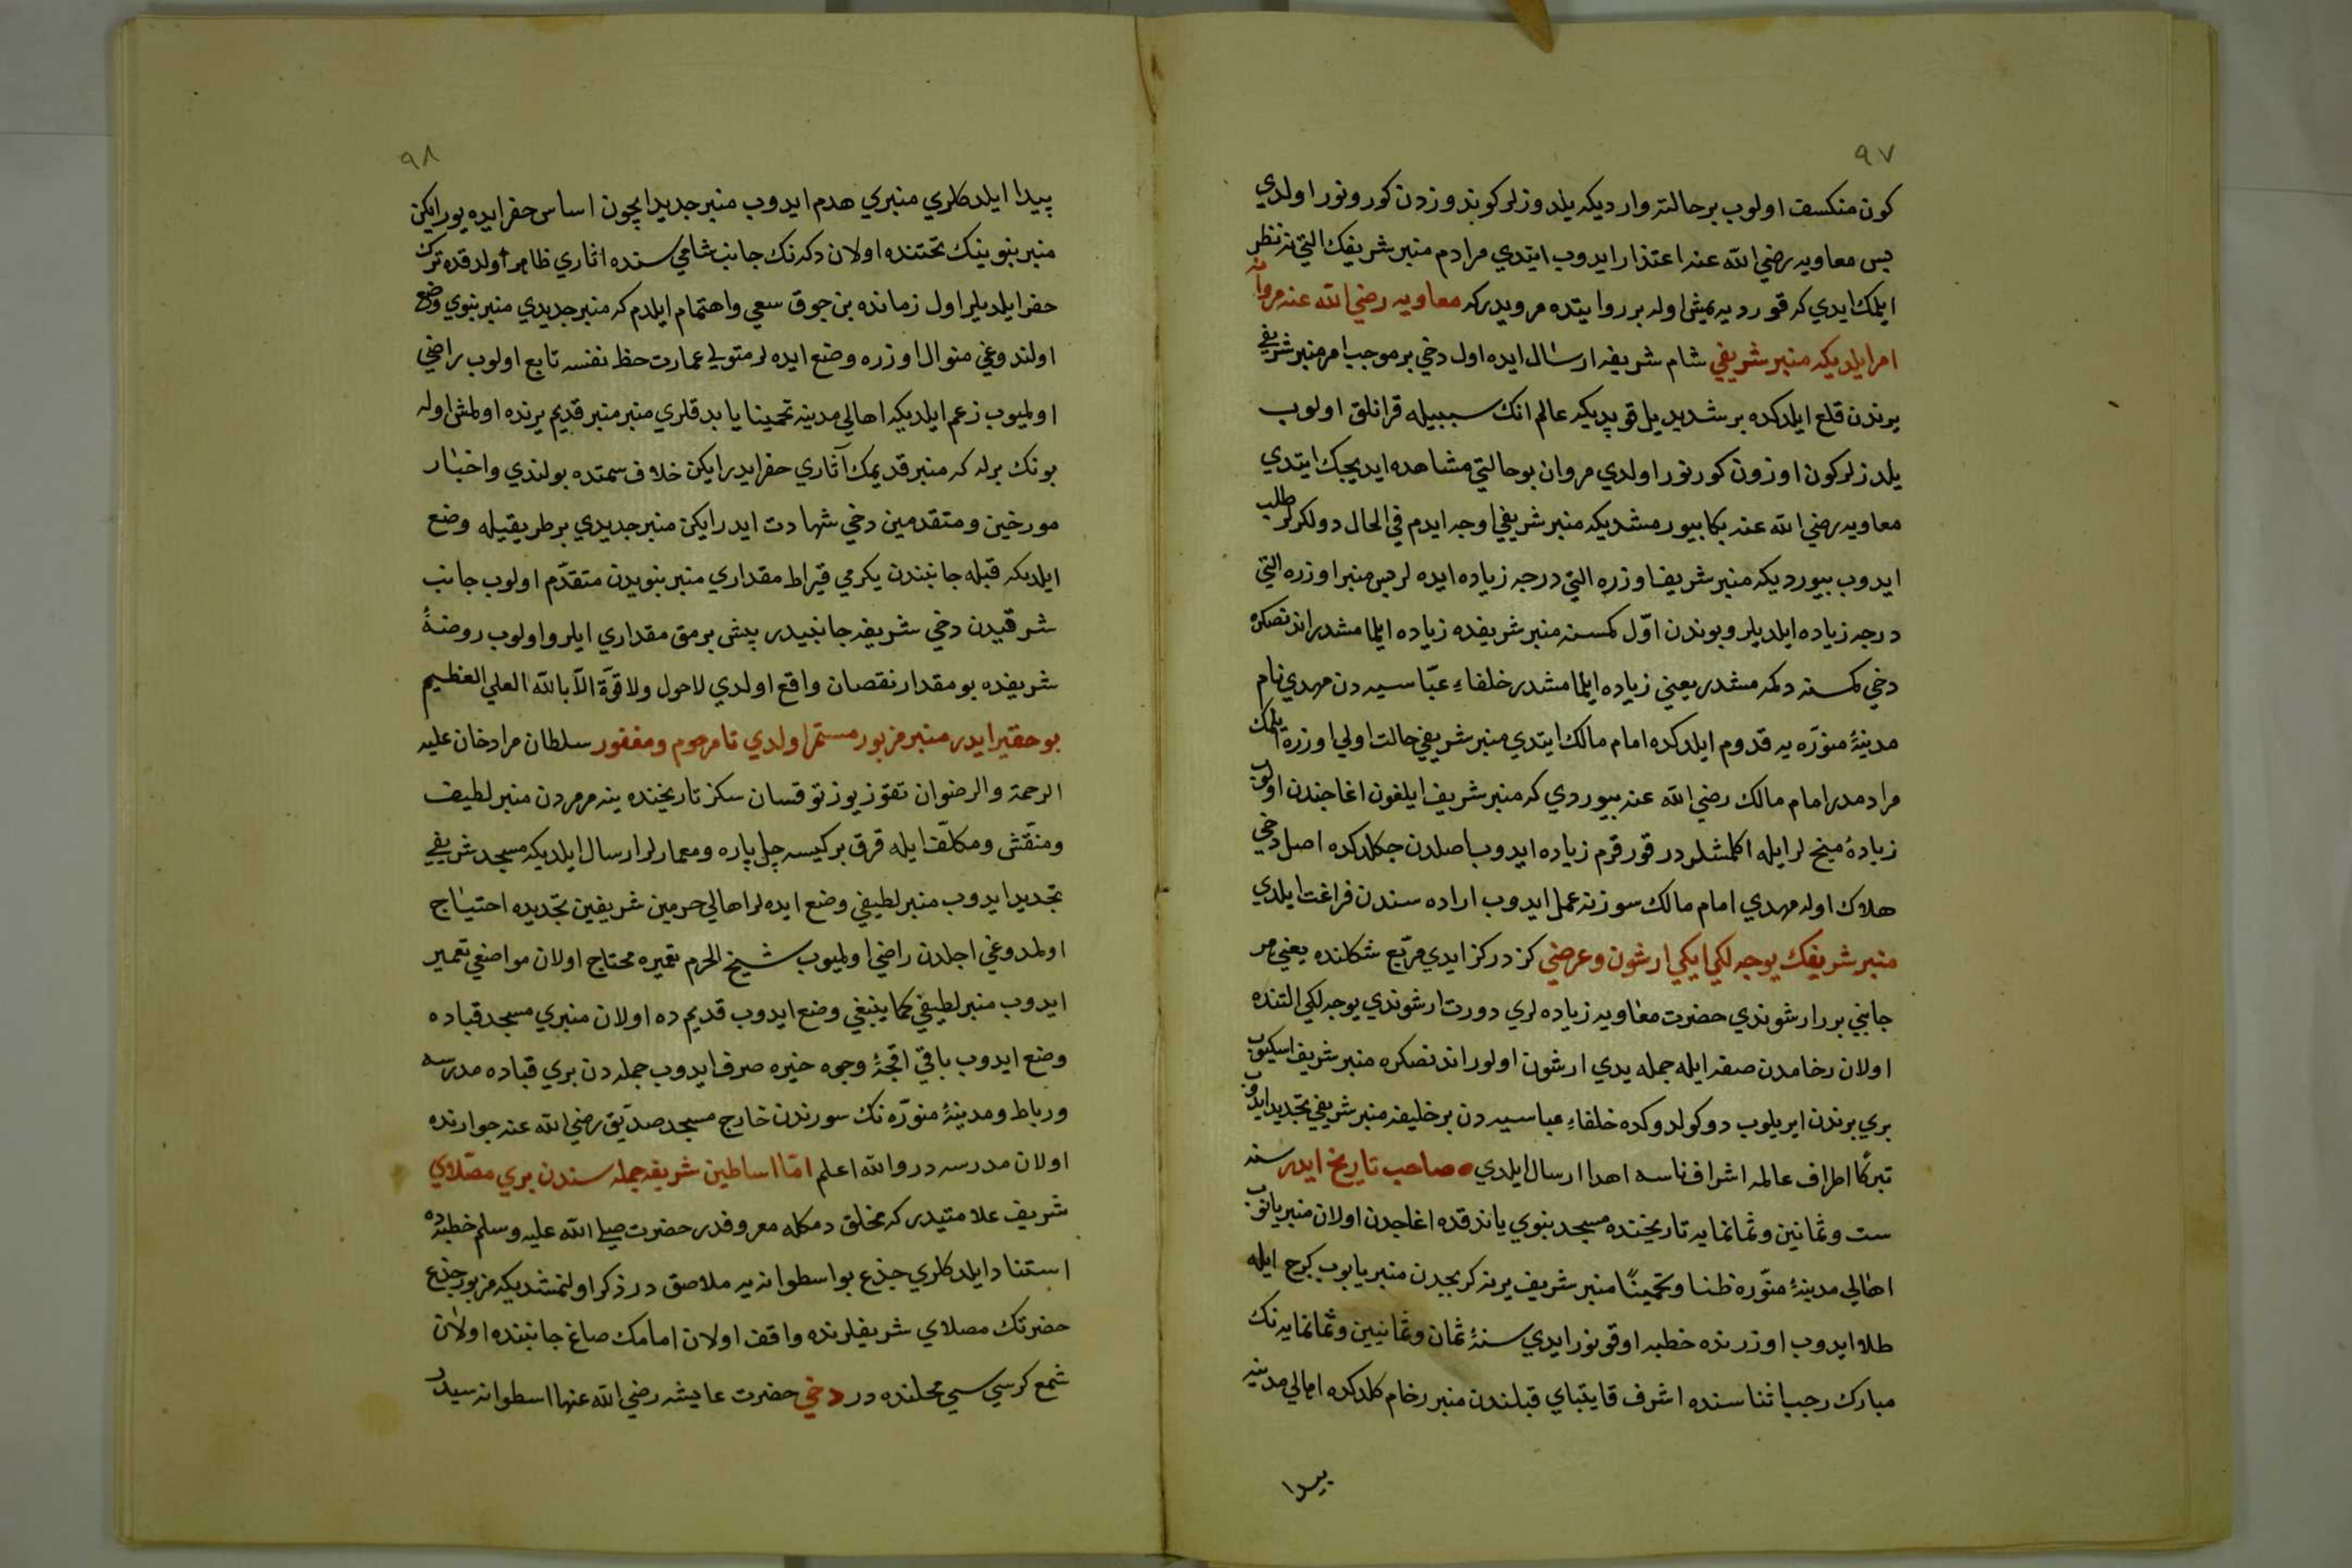 ٩٧
كون منكسف اولوب بر حالته وارديكه يلدوزلر كوندوزدن كورونور اولدي
پس معاويه رضي الله عنه اعتذار ايدوب ايتدي مرادم منبر شريفك التي نه نظر
ايلمك ايدي كه قورد يه يمش اوله بر روايتده مرويدركه معاويه رضي الله عنه مروانه
امر ايلديكه منبر شريفي شام شريفه ارسال ايده اول دخي بر موجب امر منبر شريفي
يرندن قلع ايلدكده بر شديد يل قوپديكه عالم انك سببيله قراڭلق اولوب
يلدزلر كون اوزون كورنور اولدي مروان بو حالتي مشاهده ايديجك ايتدي
معاويه رضي الله عنه بكا بيورمشديكه منبر شريفي اوجه ايدم في الحال دولكرلر طلب
ايدوب بيورديكه منبر شريف اوزره التي درجه زياده ايده لر پس منبر اوزره التي
درجه زياده ايلديلر و بوندن اوّل كمسنه منبر شريفده زياده ايلمامشدر اندنصكره
دخي كمسنه دكمه مشدر يعني زياده ايلمامشدر خلفاء عبّاسيه دن مهدي نام
مدينهٔ منوّره يه قدوم ايلدكده امام مالك ايتدي منبر شريفي حالت اولي اوزره ايلمك
مرادمدر امام مالك رضي الله عنه بيوردي كه منبر شريف ايلغون اغاجندن اولوب
زياده ميخ لر ايله اكلمشلردر قورقرم زياده ايدوب اصلدن جكلدكده اصل دخي
هلاك اوله مهدي امام مالك سوزنه عمل ايدوب اراده سندن فراغت ايلدي
منبر شريفك يوجه لكي ايكي ارشون و عرضي كز در كز ايدي مربّع شكلنده يعني هر
جانبي برر ارشوندي حضرت معاويه زياده لري دورت ارشوندي يوجه لكي التنده
اولان رخامدن صفه ايله جمله يدي ارشون اولور اندنصكره منبر شريف اسكيوب
بري برندن ايريلوب دوكولدوكده خلفاء عباسيه دن بر خليفه منبر شريفي تجديد ايدوب
تبركًا اطراف عالمه اشراف ناسه اهدا ارسال ايلدي • صاحب تاريخ ايدر سنه
ست و ثمانين و ثمانمايه تاريخنده مسجد نبوي ياندقده اغاجدن اولان منبر يانوب
اهالي مدينهٔ منوّره ظنا و تخمينًا منبر شريف يرنه كربجدن منبر ياپوب كرج ايله
طلا ايدوب اوزرنده خطبه اوقونور ايدي سنهٔ ثمان و ثمانيين و ثمانمايه نك
مبارك رجب اثناسنده اشرف قايتباي قبلندن منبر رخام كلدكده اهالي مدينه
پيدا
٩٨
پيدا ايلدكلري منبري هدم ايدوب منبر جديد ايچون اساس حفر ايده يورايكن
منبر نبوينك تحتنده اولان دكه نك جانب شاميسنده اثاري ظاهر اولدقده ترك
حفر ايلديلر اول زمانده بن جوق سعي و اهتمام ايلدم كه منبر جديدي منبر نبوي وضع
اولندوغي منوال اوزره وضع ايده لر متولي عمارت حظ نفسه تابع اولوب راضي
اولميوب زعم ايلديكه اهالي مدينه تخمينا ياپدقلري منبر منبر قديم يرنده اولمش اوله
بونك برله كه منبر قديمك آثاري حفر ايدرايكن خلاف سمتده بولندي و اخبار
مورخين و متقدمين دخي شهادت ايدرايكن منبر جديدي بر طريقيله وضع
ايلديكه قبله جانبندن يكرمي قيراط مقداري منبر نبويدن متقدّم اولوب جانب
شرقيدن دخي شريفه جانبيدر بش برمق مقداري ايلرو اولوب روضهٔ
شريفده بو مقدار نقصان واقع اولدي لاحول ولا قوّة الّا بالله العلي العظيم
بو حقير ايدر منبر مزبور مستمر اولدي تا مرحوم و مغفور سلطان مراد خان عليه
الرحمة والرضوان تقوز يوز توقسان سكز تاريخنده ينه مرمردن منبر لطيف
و منقّش و مكلّف ايله قرق بر كيسه چل پاره و معمارلر ارسال ايلديكه مسجد شريفي
تجديد ايدوب منبر لطيفي وضع ايده لر اهالي حرمين شريفين تجديده احتياج
اولمدوغي اجلدن راضي اولميوب شيخ الحرم تعميره محتاج اولان مواضعي تعمير
ايدوب منبر لطيفي كما ينبغي وضع ايدوب قديمده اولان منبري مسجد قباده
وضع ايدوب باقي اقچهٔ وجوه خيره صرف ايدوب جمله دن بري قباده مدرسه
و رباط و مدينهٔ منوّره نك سورندن خارج مسجد صدّيق رضي الله عنه جوارنده
اولان مدرسه در والله اعلم امّا اساطين شريفه جمله سندن بري مصلاي
شريف علامتيدر كه مخلق دمكله معروفدر حضرت صلى الله عليه وسلم خطبه ده
استناد ايلدكلري جذع بو اسطوانه يه ملاصق در ذكر اولنمشديكه مزبور جذع
حضرتك مصلاي شريفلرنده واقف اولان امامك صاغ جانبنده اولان
شمع كرسيسي محلنده در دخي حضرت عايشه رضي الله عنها اسطوانه سيدر